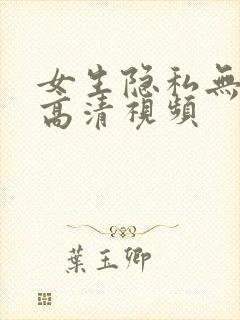 女生隐私無
高清視頻
葉玉卿